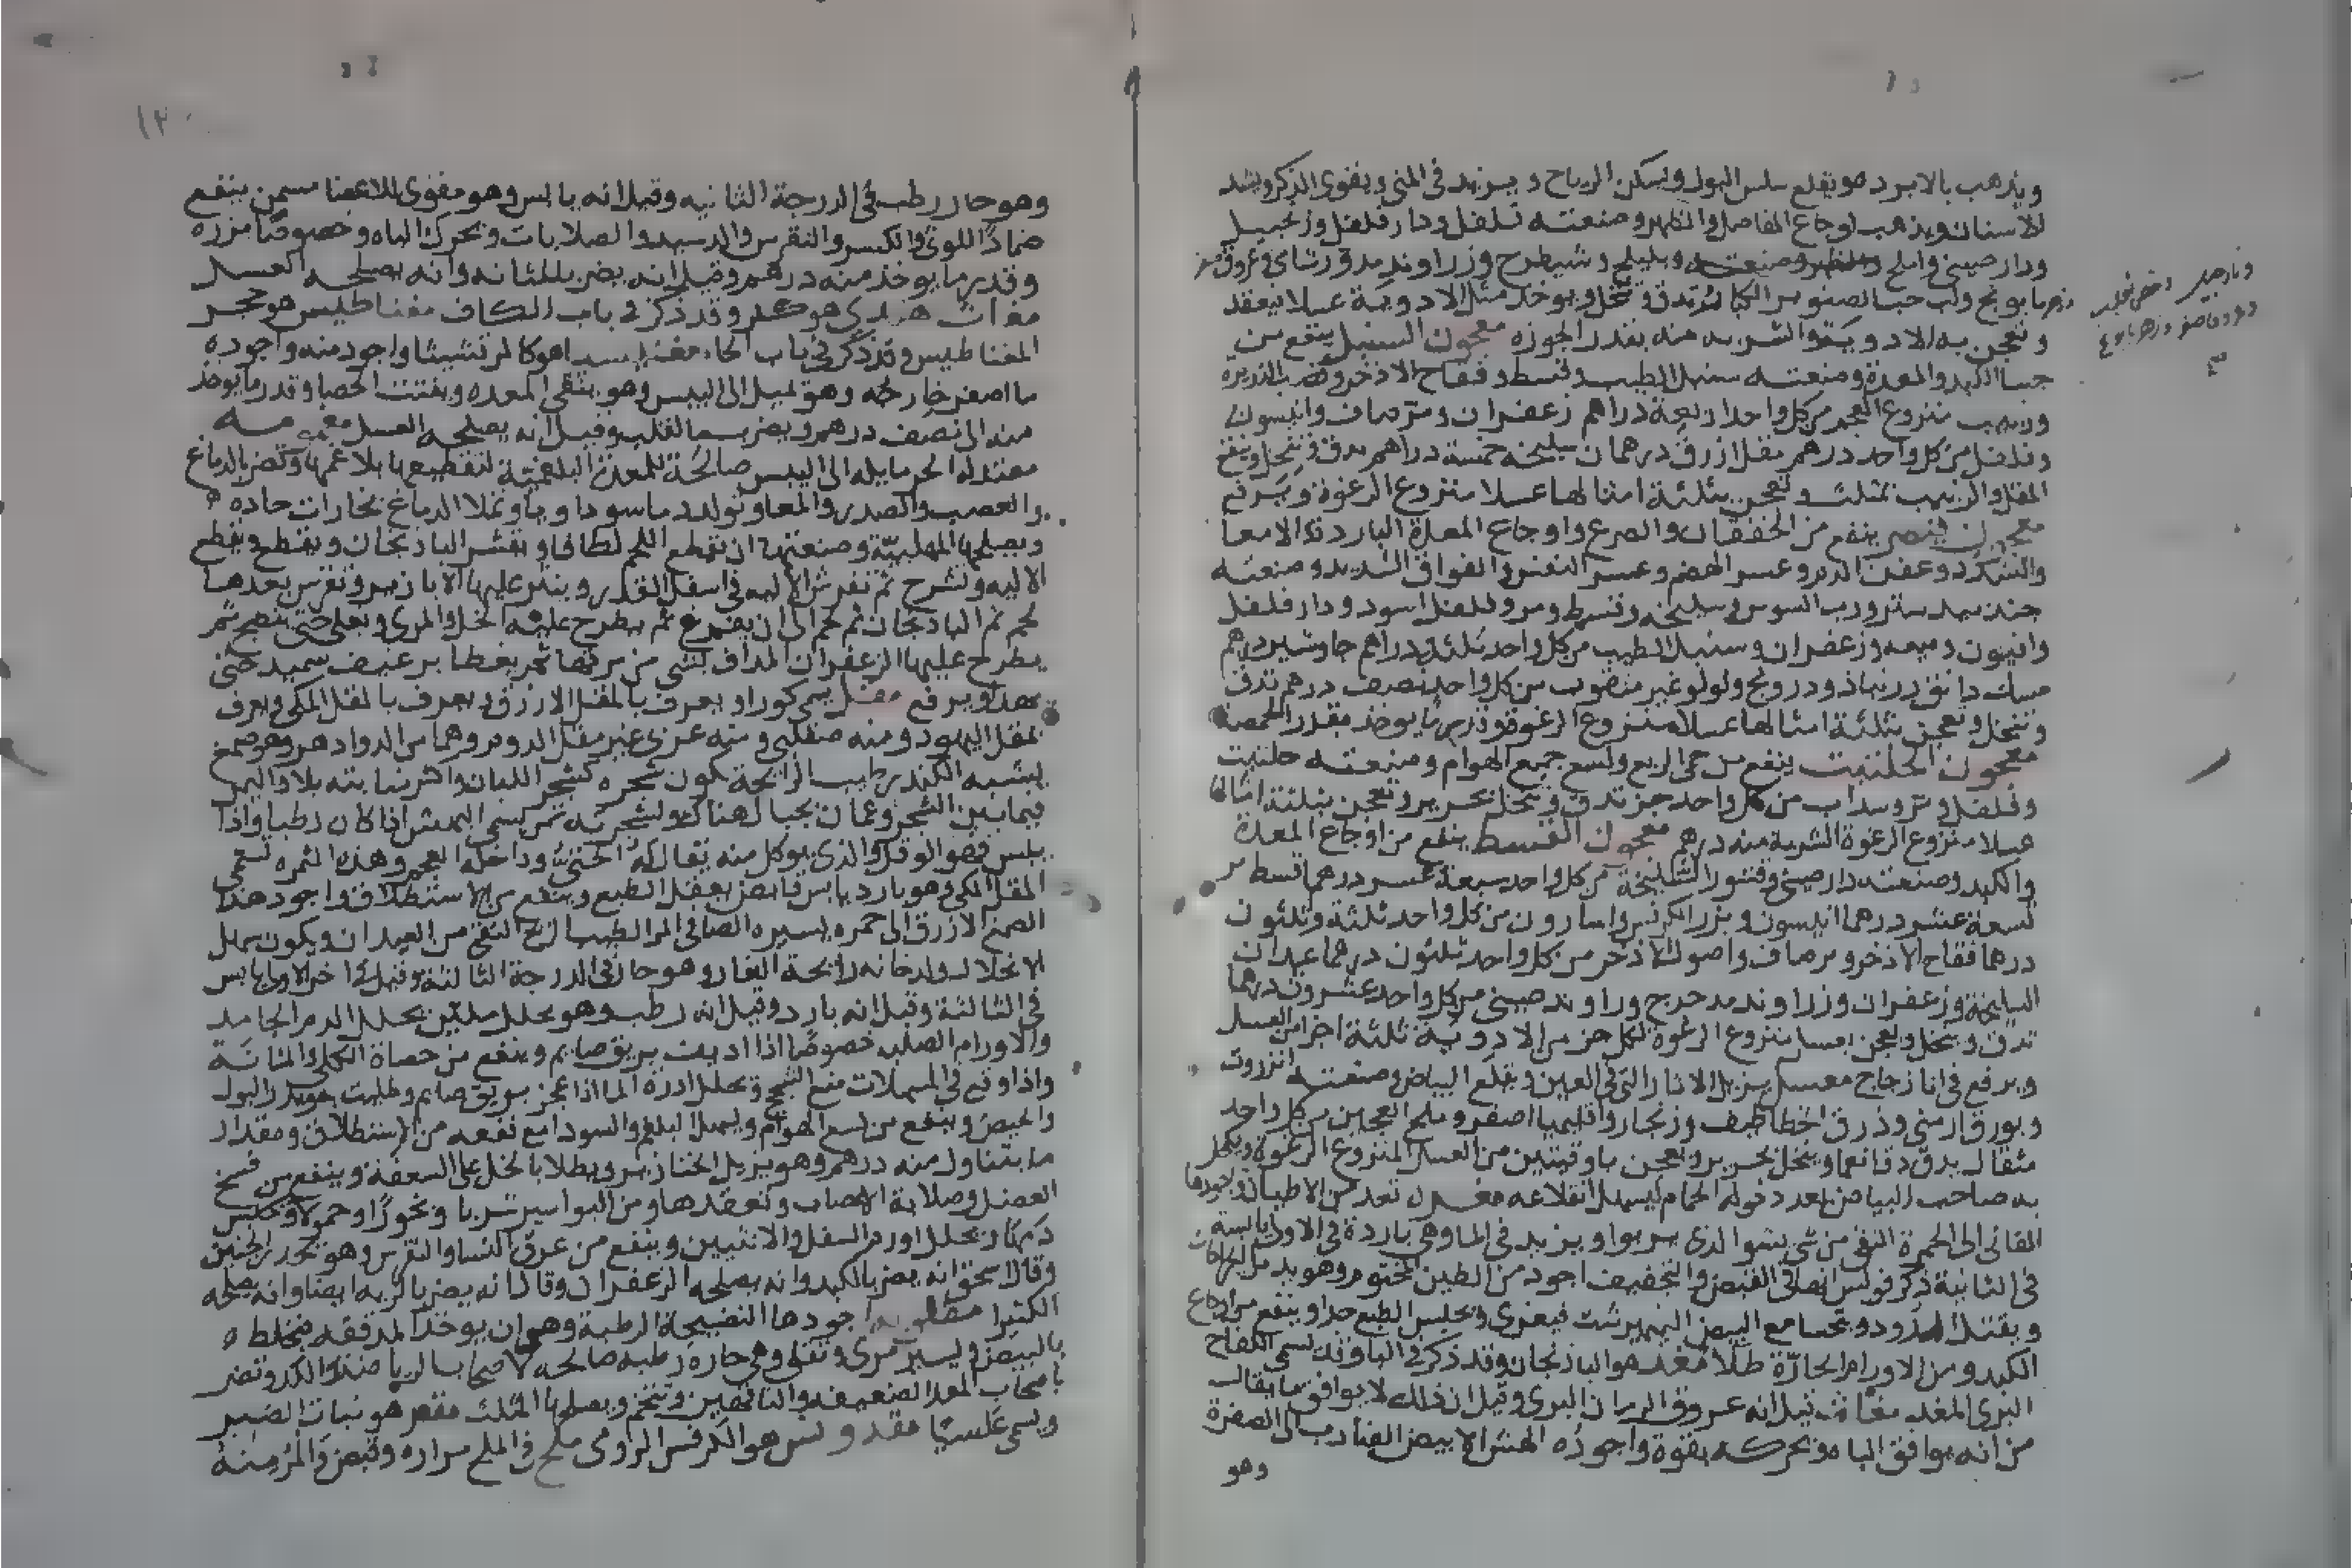 ويذهب بالابردة ويقلع سلس البول ويسكن الرياح ويزيد في المني ويقوي الذكر ويشد
للاسنان ويذهب اوجاع المفاصل والظهر وصنعته فلفل ودار فلفل وزنجبيل
ودار صيني واملج وبليلج وشيطرج وزراوند مدور
بابونج ولب حب الصنوبر الكبار تدق وتنخل ويوخذ مثل الادوية عسلا فيعقد
وتعجن به الادوية والشربه منه بقدر الجوزه معجون السنبل ينفع من
جسا الكبد والمعدة وصنعته سنبل الطيب وقسط وفقاح الاذخر وقصب الذريره
وزبيب منزوع العجم من كل واحد اربعة دراهم زعفران ومر صاف وانيسون
وفلفل من كل واحد درهم مقل ازرق درهمان سليخه خمسة دراهم يدق وينخل وينقع
المقل والزبيب بمثلث وتعجن بثلثة امثالها عسلا منزوع الرغوة ويرفع
معجون قيصر ينفع من الخفقان والصرع واوجاع المعدة الباردة والامعا
وعسر الهضم وعسر النفس والفواق الشديد وصنعته
جندبيدستر ورب السوس وسليخه وقسط ومر وفلفل اسود ودار فلفل
وافيون وميعه وزعفران وسنبل الطيب من كل واحد ثلثة دراهم جاوشير درهم
مسك دانق زرنباذ ودرونج ولولو غير مثقوب من كل واحد نصف درهم تدق
وتنخل وتعجن بثلثة امثالها عسلا منزوع الرغوة يوخذ مقدار الحمصة
معجون الحلتيت ينفع من حمى الربع ولسع جميع الهوام وصنعته حلتيت
وفلفل ومر وسداب من كل واحد جز تدق وتنخل بحرير وتعجن بثلثة امثالها
عسلا منزوع الرغوة الشربة منه درهم معجون القسط ينفع من اوجاع المعدة
والكبد وصنعته دار صيني وقشور السليخة من كل واحد سبعة عشر درهما قسط مر
تسعة عشر درهما انيسون وبزر الكرفس واسارون من كل واحد ثلثة وثلثون
درهما فقاح الاذخر ومر صاف واصول الاذخر من كل واحد ثلثون درهما عيدان
السليخة وزعفران وزراوند مدحرج وراوند صيني من كل واحد عشرون درهما
تدق وتنخل وتعجن بعسل منزوع الرغوة لكل جز من الادوية ثلثة اجزا من العسل
ويرفع في انا زجاج معسل يزيل الاثار التي في العين ويقلع البياض وصنعته انزروت
وبورق ارمني وذرق الخطاطيف وزنجار واقليميا اصفر وملح العجين من كل واحد
مثقال يدق دقا ناعما وينخل بحرير ويعجن باوقيتين من العسل المنزوع الرغوة ويكحل
به صاحب البياض بعد دخوله الحمام ليسهل انقلاعه مغره تعد من الاطيان واجودها
القاني الى الحمرة النقي من شي يشوبه الذي يربوا ويزيد في الما وهي باردة في الاولى يابسة
في الثانية ذكر فولس انها في القبض والتجفيف اجود من الطين المختوم وهو يدمل الجراحات
ويقتل الدود وتحسا مع البيض النيمبرشت فيغري ويحبس الطبع جدا وينفع من اوجاع
الكبد ومن الاورام الحارة طلا مغد هو الباذنجان وقد ذكر في البا وقد يسمى اللفاح
البري المغد مغاث قيل انه عروق الرمان البري وقيل ان ذلك لا يوافق ما يقال
من انه يوافق الباه وتحركه بقوة واجوده الهش الابيض الضارب الى الصفرة
وهو
١٢٠
وهو حار رطب في الدرجة الثانيه وقيل انه يابس وهو مقوي للاعضا مسمن ينفع
ضمادا للوثي والكسر والنقرس والصلابات وتحرك الباه وخصوصا بزره
وقدر ما يوخذ منه درهم وقيل انه يضر بالمثانه وانه يصلحه العسل
مغاث هندي هو وقد ذكر في باب الكاف مغناطيس هو حجر
المغناطيس وقد ذكر في باب الحا مغنيسيا هو كالمرقشيثا واجود منه واجوده
ما اصفر خارجه وهو يميل الى اليبس وهو ينقي المعده ويفتت الحصا وقدر ما يوخذ
منه الى نصف درهم ويضر بالقلب وقيل انه يصلحه العسل
معتدله الحر مايله الى اليبس صالحة للمعدة البلغمية لتقطيعها بلاغمها وتضر بالدماغ
والعصب والصدر والمعا وتولد دما سوداويا وتملا الدماغ بخارات حاده
ويصلحها المهلبية وصنعتها ان تقطع اللحم لطافا ويقشر الباذنجان ويقطع ويقطع
الاليه وتشرح ثم تفرش الاليه في اسفل القدر وينثر عليها الابازير وتفرش بعدها
لحم ثم الباذنجان ثم لحم الى ان يفرغ ثم يطرح عليه الخل والمري ويغلي حتى ينضج ثم
يطرح عليها الزعفران المداف بشي من مرقها ثم يغطا برغيف سميد حتى
يهدي ويرفع مقل يسمى كورا ويعرف بالمقل الازرق ويعرف بالمقل المكي ويعرف
بمقل اليهود ومنه صقلبي ومنه عربي غير مقل الدوم وهما من الدوادم وهو صمغ
يشبه الكندر طيب الرائحة يكون شجره كشجر اللبان واكثر نباته بلاد اليمن
فيما بين الشحر وعمان بجبال هناك ولشجرته ثمر يسمى البهش اذا كان رطبا واذا
يبس فهو الوقل والذي يوكل منه يقال له الحتي وداخله العجم وهذه الثمره تسمى
المقل المكي وهو بارد يابس قابض يعقل الطبع وينفع من الاستطلاق واجود هذا
الصمغ الازرق الى حمره يسيره الصافي المر الطيب الريح النقي من العيدان ويكون سهل
الانحلال ولدخانه رايحة الغار وهو حار في الدرجة الثالثة وقيل في اخر الاولى يابس
في الثالثة وقيل انه بارد وقيل انه رطب وهو محلل ملين يحلل الدم الجامد
والاورام الصلبه خصوصا اذا اديف بريق صايم وينفع من حصاة الكلى والمثانة
واذا وقع في المسهلات منع السحج ويحلل ادرة الما اذا عجن بريق صايم وطليت به ويدر البول
والحيض وينفع من لسع الهوام ويسهل البلغم والسودا مع نفعه من الاستطلاق ومقدار
ما يتناول منه درهم وهو يزيل الخنازير ويطلا بالخل على السعفة وينفع من فسخ
العضل وصلابة الاعصاب وتعقدها ومن البواسير شربا وبخورا وحمولا ويحبس
دمها ويحلل اورام السفل والانثيين وينفع من عرق النسا والنقرس وهو يحدر الجنين
وقال اسحق انه يضر بالكبد وانه يصلحه الزعفران وقال انه يضر بالريه ايضا وانه يصلحه
الكثيرا مقلوبه اجودها النضيجة الرطبة وهي ان يوخذ المدققه فتخلط
بالبيض ويسير مري وتقلى وهي حاره رطبه صالحه لاصحاب الرياضة والكد وتضر
باصحاب المعد الضعيفه والناقهين وتتخم ويصلحها المثلث مقر هو نبات الصبر
ويسمى مقدونس هو الكرفس الرومي ملح في الملح مراره وقبض والمر منه